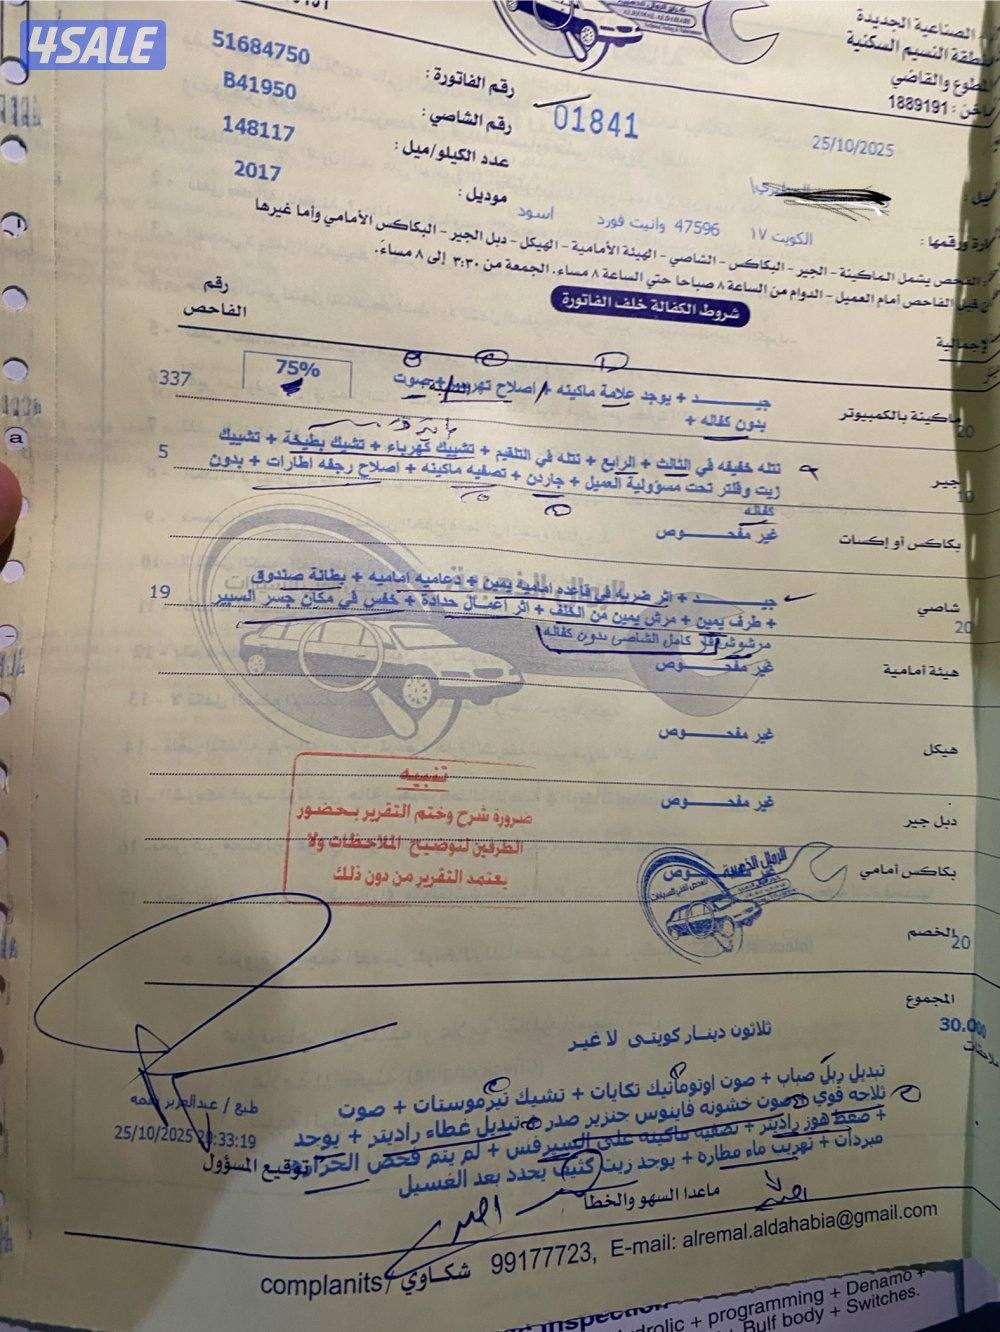 4SALE
الصناعية الجديدة
منطقة النسيم السكنية
المطوع والقاضي
1889191
ALREMAL ALDAHABIA
25/10/2025
01841
رقم الفاتورة : 51684750
رقم الشاصي : B41950
عدد الكيلو/ميل : 148117
موديل : 2017
ورقمها : الكويت ١٧ 47596 وانيت فورد اسود
الفحص يشمل الماكينة - الجير - البكاكس - الشاصي - الهيئة الأمامية - الهيكل - دبل الجير - البكاكس الأمامي وأما غيرها
قبل الفاحص أمام العميل - الدوام من الساعة ٨ صباحا حتي الساعة ٨ مساء. الجمعة من ٣:٣٠ إلى ٨ مساءً.
شروط الكفالة خلف الفاتورة
رقم
الفاحص
الإجمالية
ماكينة بالكمبيوتر
20
جيـــــد + يوجد علامة ماكينه + اصلاح تهريب + صوت
75%
337
بدون كفاله +
جير
10
نتله خفيفه في الثالث + الرابع + نتله في التلقيم + تشييك كهرباء + تشيك بطيخة + تشييك
زيت وفلتر تحت مسؤولية العميل + جاردن + تصفيه ماكينه + اصلاح رجفه اطارات + بدون
كفاله
5
بكاكس أو إكسات
غير مفحـــــوص
شاصي
20
جيـــــد + اثر ضربه في قاعده اماميه يمين + دعاميه اماميه + بطانة صندوق
+ طرف يمين + مرش يمين من الخلف + اثر اعمال حدادة + خفس في مكان جسر السبير
كامل الشاصي بدون كفاله
19
هيئة أمامية
غير مفحـــــوص
هيكل
غير مفحـــــوص
دبل جير
غير مفحـــــوص
بكاكس أمامي
الرمال الذهبية
الخصم
20
تنبيه
ضرورة شرح وختم التقرير بحضور
الطرفين لتوضيح الملاحظات ولا
يعتمد التقرير من دون ذلك
المجموع
30.000
ثلاثون دينار كويتى لا غير
ملاحظات
تبديل ربل صباب + صوت اوتوماتيك تكايات + تشيك ثرموستات + صوت
ثلاجه قوي + صوت خشونه فاينوس جنزير صدر + تبديل غطاء راديتر + يوجد
+ ضغط هوز راديتر + تصفيه ماكينه على السيرفس + لم يتم فحص الحراره
مبردات + تهريب ماء مطاره + يوجد زيت كثيف يحدد بعد الغسيل
طبع / عبدالعزيز
25/10/2025 20:33:19
توقيع المسؤول
ماعدا السهو والخطأ
complanits/ شكاوي 99177723, E-mail: alremal.aldahabia@gmail.com
Inspection
+ programming + Denamo +
Bulf body + Switches.